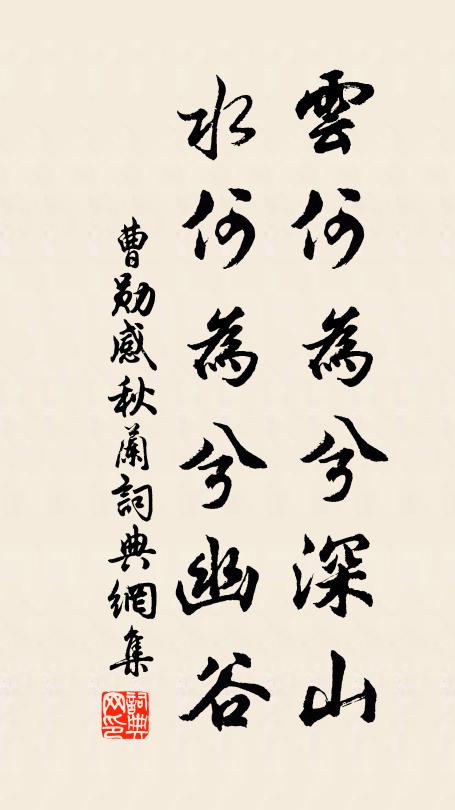 雲何為兮深山
水何為兮幽谷
曹勛感秋蘭詞典網集
詞典網印